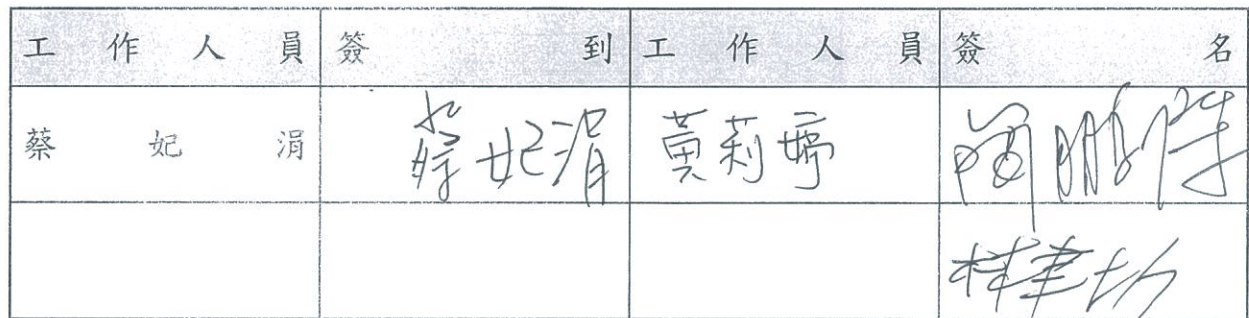 工作人員 簽到 工作人員 簽名
蔡妃涓 蔡妃涓 黃莉婷